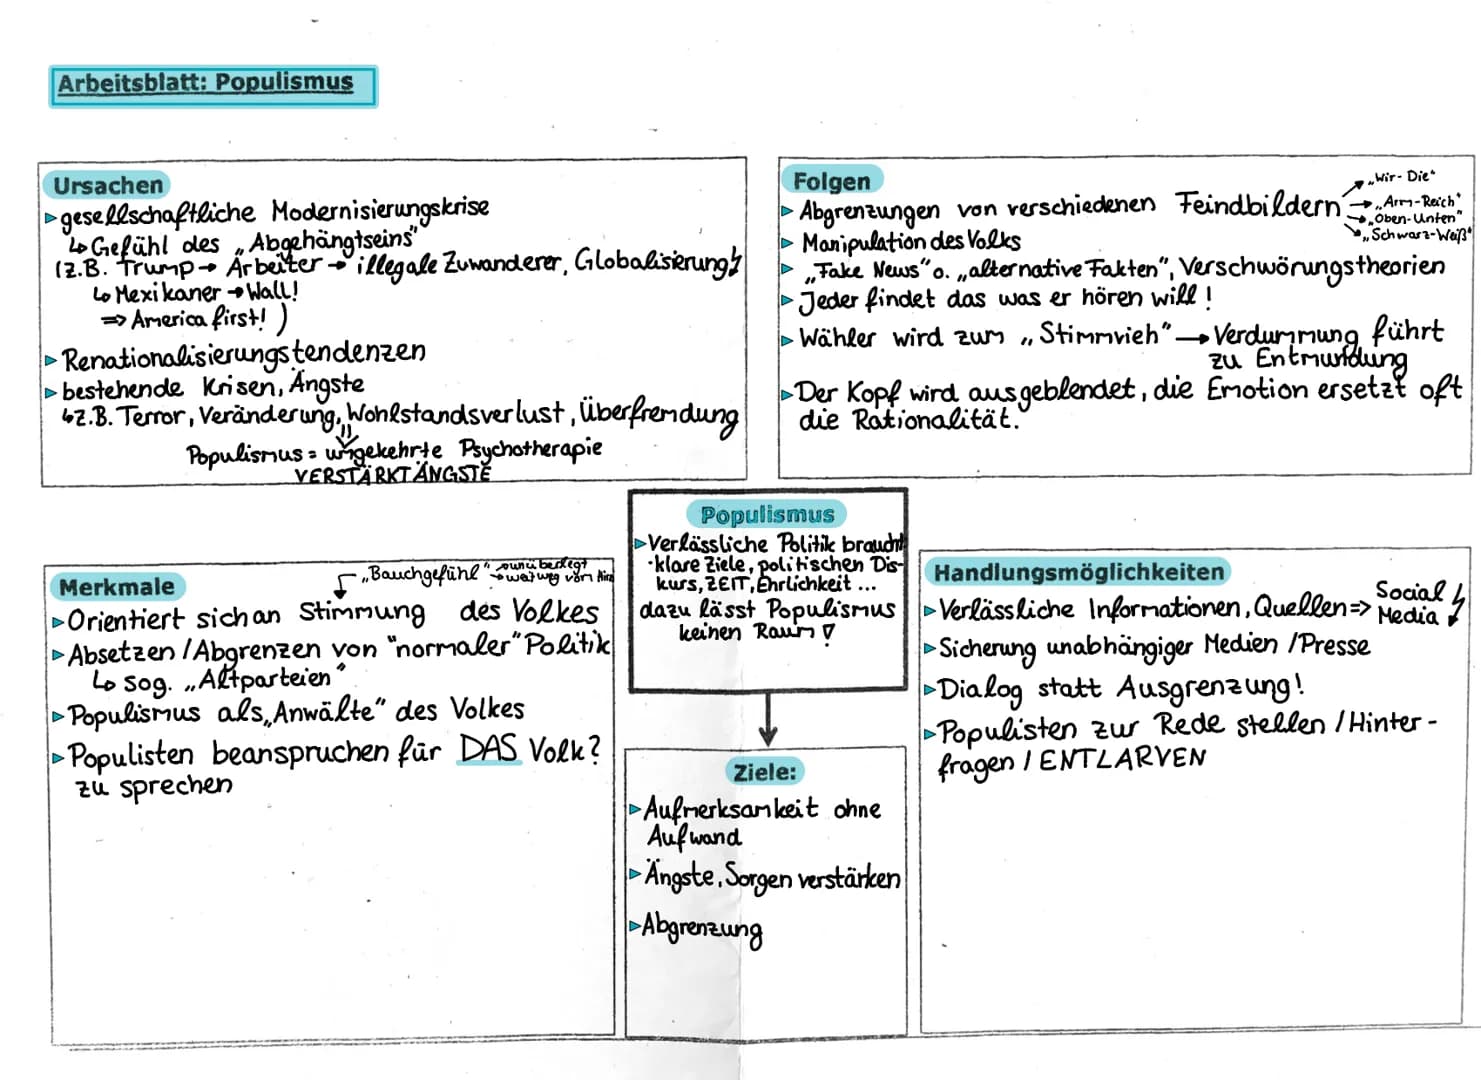 Arbeitsblatt: Populismus
Ursachen
▹gesellschaftliche Modernisierungskrise
↳Gefühl des „Abgehängtseins"
(z.B. Trump→ Arbeiter→ illegale Zuwanderer, Globalisierung↯
↳Mexikaner→Wall!
⇒ America first! )
▹Renationalisierungstendenzen
▹bestehende Krisen, Ängste
↳z.B. Terror, Veränderung, Wohlstandsverlust, Überfremdung
Populismus = umgekehrte Psychotherapie
VERSTÄRKT ÄNGSTE
Folgen
▹Abgrenzungen von verschiedenen Feindbildern
→„Wir-Die"
→„Arm-Reich"
→„Oben-Unten"
→„Schwarz-Weiß"
▹Manipulation des Volks
▹„Fake News" o. „alternative Fakten", Verschwörungstheorien
▹Jeder findet das was er hören will!
▹Wähler wird zum „Stimmvieh"→Verdummung führt
zu Entmündung
▹Der Kopf wird ausgeblendet, die Emotion ersetzt oft
die Rationalität.
Populismus
▹Verlässliche Politik braucht
·klare Ziele, politischen Dis-
kurs, ZEIT, Ehrlichkeit ...
dazu lässt Populismus
keinen Raum!
Merkmale
„Bauchgefühl"
→unüberlegt
→weit weg vom Hirn
▹Orientiert sich an Stimmung des Volkes
▹Absetzen/Abgrenzen von "normaler" Politik
↳ sog. „Altparteien"
▹Populismus als „Anwälte" des Volkes
▹Populisten beanspruchen für DAS Volk?
zu sprechen
Ziele:
▹Aufmerksamkeit ohne
Aufwand
▹Ängste, Sorgen verstärken
▹Abgrenzung
Handlungsmöglichkeiten
▹Verlässliche Informationen, Quellen=> Social
Media ↯
▹Sicherung unabhängiger Medien/Presse
▹Dialog statt Ausgrenzung!
▹Populisten zur Rede stellen/Hinter-
fragen/ENTLARVEN